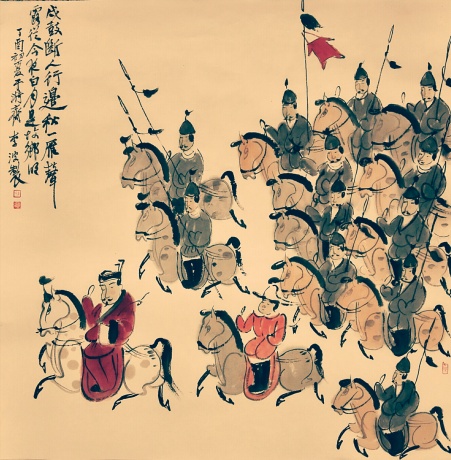 戍鼓斷人行邊秋一雁聲
露從今夜白月是故鄉明
丁酉初夏于齋李波製